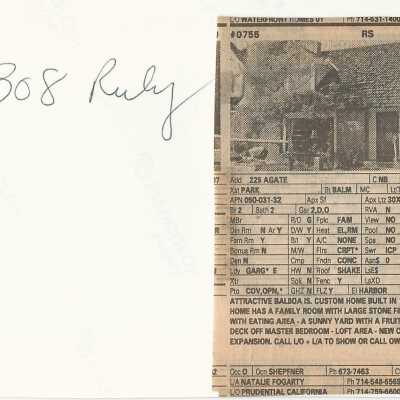 308 Ruby
L/O WATERFRONT HOMES 01 Ph 714-631-1400
#0755 RS
Add 225 AGATE C NB
Xst PARK Rt BALM MC
APN 050-031-32 Apx Sf Apx Ltz 30X
Br 2 Bath 2 Gar 2,D,O RVA N
MBr R/O G Fplc FAM View NO
Din Rm N Ar Y D/W Y Heat EL,RM Pool NO
Fam Rm Y B/I Y A/C NONE Spa NO
Bonus Rm N M/W Flrs CRPT* Swr ICP
Den N Cmp Fndn CONC Asn$ 0
Ldy GARG* E H/W N Roof SHAKE LsE$
Xtr Sok N Fenc Y LsXD
Pto COV,OPN,* GHZ N FLZ Y El HARBOR
ATTRACTIVE BALBOA IS. CUSTOM HOME BUILT IN
HOME HAS A FAMILY ROOM WITH LARGE STONE
WITH EATING AREA - A SUNNY YARD WITH A FRUIT
DECK OFF MASTER BEDROOM - LOFT AREA - NEW
EXPANSION. CALL L/O + L/A TO SHOW OR CALL
Occ O Own SHEPFNER Ph 673-7463
L/A NATALIE FOGARTY Ph 714-548-
L/O PRUDENTIAL CALIFORNIA Ph 714-759-